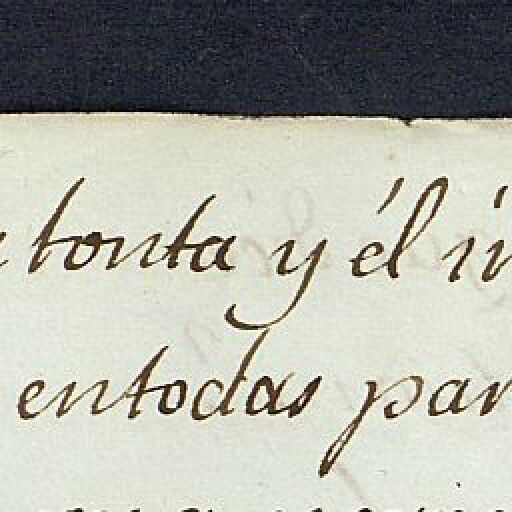 tonta y él
entodas par